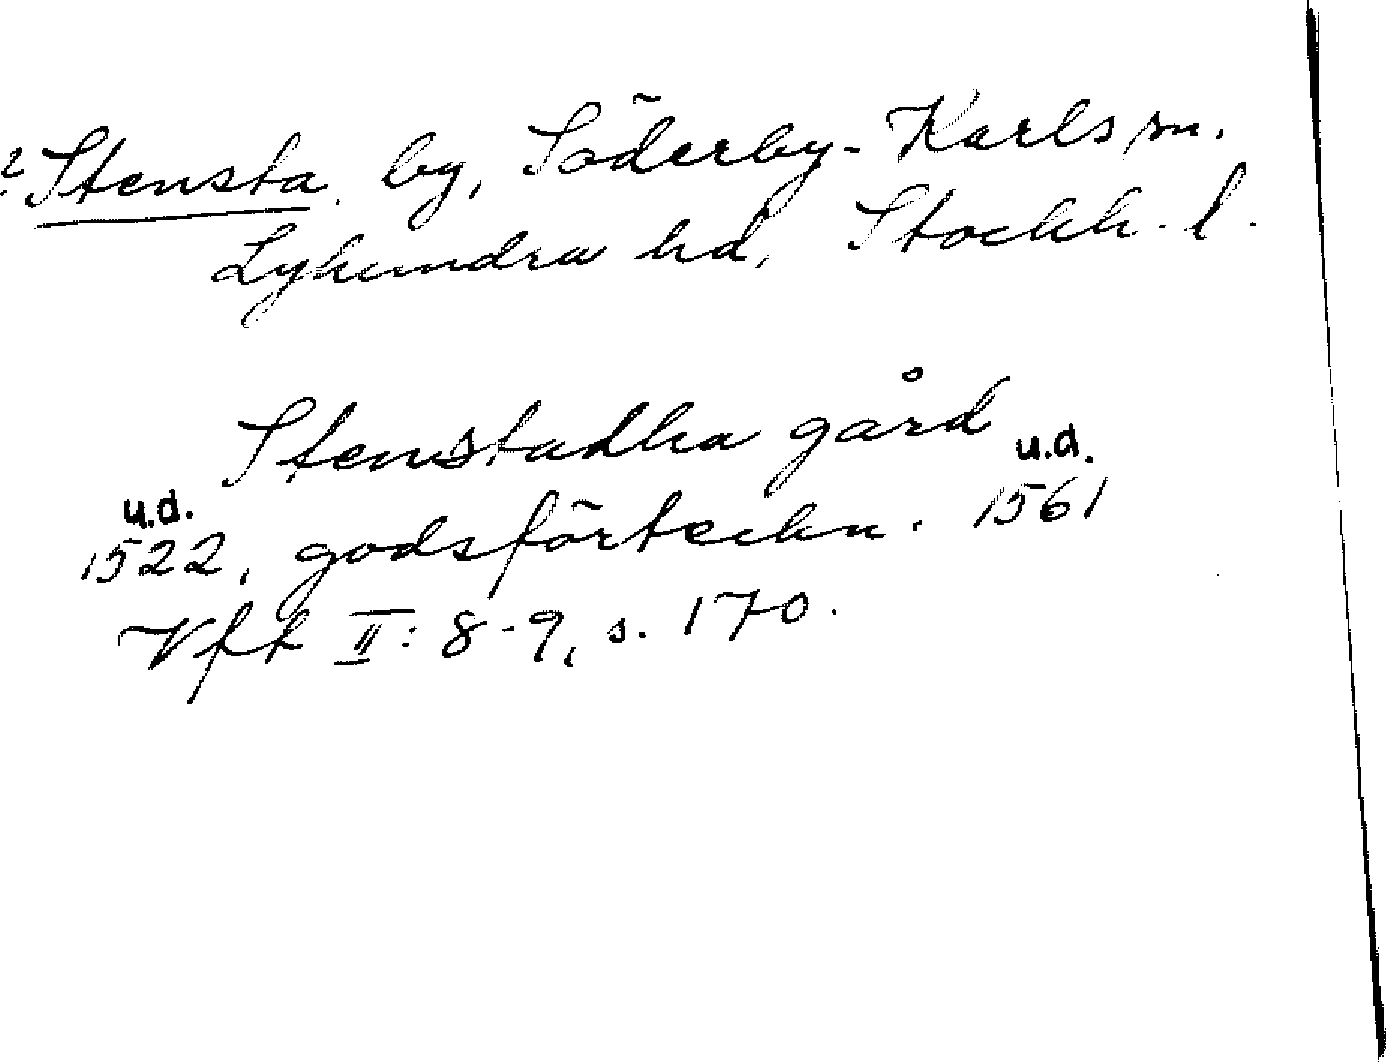 ? Stensta, by, Söderby-Karls sn.
Lyhundra hd, Stockh. l.
Stenstadha gård
u.d. u.d.
1522, godsförteckn. 1561
Vfk II: 8-9, s. 170.